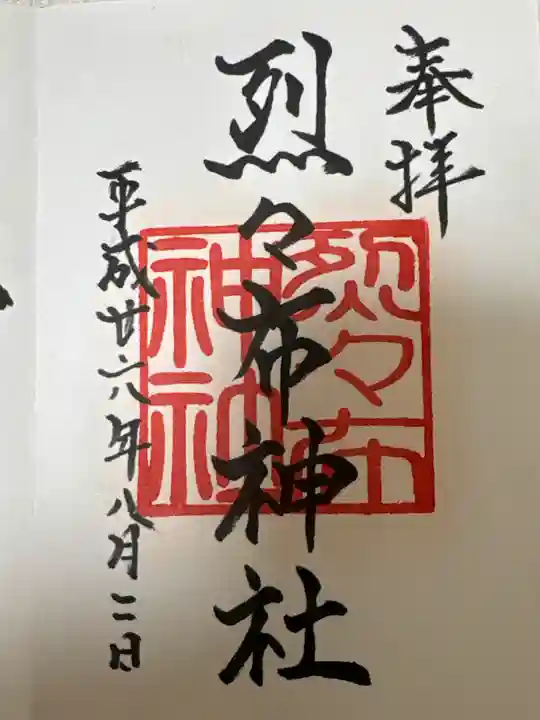 奉拝
烈々布神社
烈々布
神社
平成廿六年八月二日